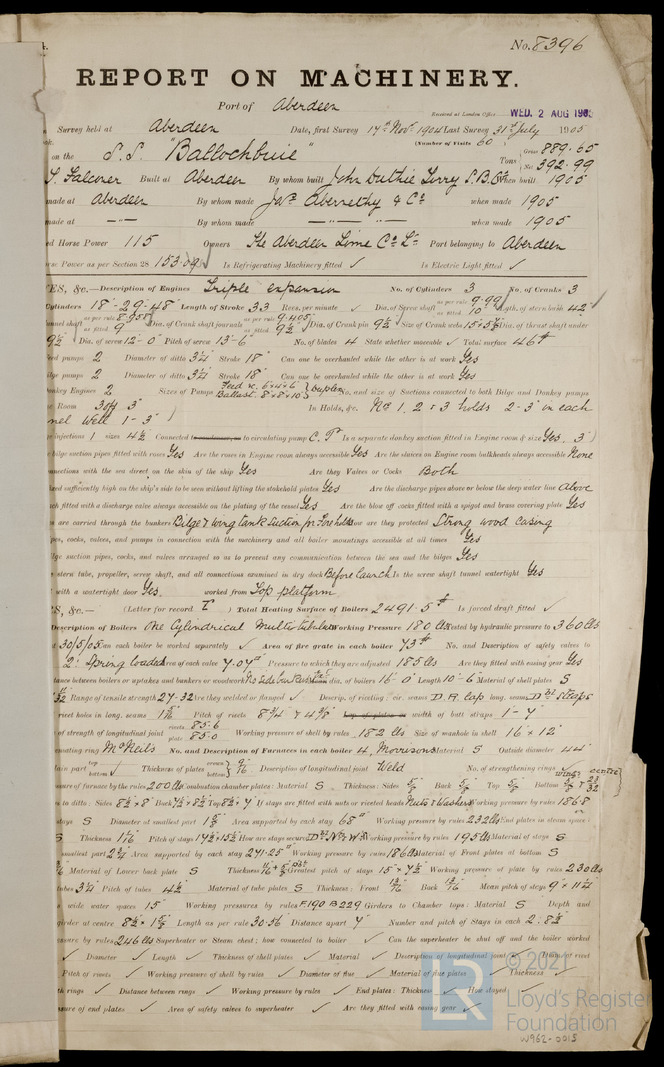 No. 8396
REPORT ON MACHINERY.
Port of Aberdeen
Received at London Office WED. 2 AUG 1905
Survey held at Aberdeen Date, first Survey 17th Nov. 1904 Last Survey 31st July 1905
(Number of Visits 60)
on the S.S. "Ballochbuie" Tons Gross 889.65 Net 392.99
Falconer Built at Aberdeen By whom built John Duthie Sons S.B. Co When built 1905
made at Aberdeen By whom made Jas. Abernethy & Co when made 1905
made at —"— By whom made —"— —"— when made 1905
Horse Power 115 Owners The Aberdeen Lime Co Ld Port belonging to Aberdeen
Power as per Section 28 153.09 Is Refrigerating Machinery fitted ✓ Is Electric Light fitted ✓
ES, &c.—Description of Engines Triple expansion No. of Cylinders 3 No. of Cranks 3
Cylinders 18"-29"-48" Length of Stroke 33 Revs. per minute ✓ Dia. of Screw shaft as per rule 9.99 as fitted 10" Length of stern bush 42"
Dia. of Crank shaft journals as per rule 9.405 as fitted 9½" Dia. of Crank pin 9½" Size of Crank webs Dia. of thrust shaft under
9½" Dia. of screw 12-0" Pitch of screw 13-6" No. of blades 4 State whether moveable ✓ Total surface 46
pumps 2 Diameter of ditto 3¼ Stroke 18" Can one be overhauled while the other is at work Yes
pumps 2 Diameter of ditto 3¼ Stroke 18" Can one be overhauled while the other is at work Yes
Donkey Engines 2 Sizes of Pumps Feed Ballast 8"x8"x10" Duplex No. and size of Suctions connected to both Bilge and Donkey pumps
Room 3 of 3" In Holds, &c. No 1, 2 & 3 holds 2-3" in each
Well 1-3"
injections 1 sizes 4½ Connected to circulating pump C.P. Is a separate donkey suction fitted in Engine room & size Yes, 3"
bilge suction pipes fitted with roses Yes Are the roses in Engine room always accessible Yes Are the sluices on Engine room bulkheads always accessible None
connections with the sea direct on the skin of the ship Yes Are they Valves or Cocks Both
fixed sufficiently high on the ship's side to be seen without lifting the stokehold plates Yes Are the discharge pipes above or below the deep water line above
each fitted with a discharge valve always accessible on the plating of the vessel Yes Are the blow off cocks fitted with a spigot and brass covering plate Yes
are carried through the bunkers Bilge & wing tank Suction for Forehold How are they protected Strong wood casing
pipes, cocks, valves, and pumps in connection with the machinery and all boiler mountings accessible at all times Yes
bilge suction pipes, cocks, and valves arranged so as to prevent any communication between the sea and the bilges Yes
stern tube, propeller, screw shaft, and all connections examined in dry dock Before launch Is the screw shaft tunnel watertight Yes
with a watertight door Yes worked from Top platform
S, &c.— (Letter for record ) Total Heating Surface of Boilers 2491.5 Is forced draft fitted ✓
Description of Boilers One Cylindrical Multitubular Working Pressure 180 lbs Tested by hydraulic pressure to 360 lbs
30/5/05 Can each boiler be worked separately ✓ Area of fire grate in each boiler 73 No. and Description of safety valves to
2: Spring loaded Area of each valve 7.07" Pressure to which they are adjusted 185 lbs Are they fitted with easing gear Yes
between boilers or uptakes and bunkers or woodwork dia. of boilers 16-0" Length 10-6 Material of shell plates S
Range of tensile strength 27-32 Are they welded or flanged ✓ Descrip. of riveting: cir. seams D.R. lap long. seams Dbl Straps
rivet holes in long. seams 1 Pitch of rivets 8¾ & 4⅜ width of butt straps 1-7"
of strength of longitudinal joint rivets 85.6 plate 85.0 Working pressure of shell by rules 182 lbs Size of manhole in shell 16 x 12"
ring McNeils No. and Description of Furnaces in each boiler 4, Morrisons Material S Outside diameter 44"
part top bottom ✓ Thickness of plates crown bottom 9/16 Description of longitudinal joint Weld No. of strengthening rings ✓
pressure of furnace by the rules 200 lbs Combustion chamber plates: Material S Thickness: Sides 5/8 Back 5/8 Top 5/8 Bottom
to ditto: Sides 8½ x 8" Back 7½ x 8½ Top 8½ x 7" If stays are fitted with nuts or riveted heads Nuts & Washers Working pressure by rules 186.8
stays S Diameter at smallest part 1⅝ Area supported by each stay 68" Working pressure by rules 232 lbs End plates in steam space:
S Thickness 1 1/16 Pitch of stays 17½ x 15½ How are stays secured Working pressure by rules 195 lbs Material of stays S
smallest part 2¾ Area supported by each stay 271.25" Working pressure by rules 186 lbs Material of Front plates at bottom S
Material of Lower back plate S Thickness Greatest pitch of stays 15 x 7½ Working pressure of plate by rules 230 lbs
tubes 3¼ Pitch of tubes 4½ Material of tube plates S Thickness: Front 13/16 Back 13/16 Mean pitch of stays 9 x 11¼
wide water spaces 15" Working pressures by rules F.190 B.229 Girders to Chamber tops: Material S Depth and
girder at centre 8½ x 1⅝ Length as per rule 30.56 Distance apart 7" Number and pitch of Stays in each 2. 8½
pressure by rules 246 lbs Superheater or Steam chest; how connected to boiler ✓ Can the superheater be shut off and the boiler worked
✓ Diameter ✓ Length ✓ Thickness of shell plates ✓ Material ✓ Description of longitudinal joint ✓ Diam. of rivet
Pitch of rivets ✓ Working pressure of shell by rules ✓ Diameter of flue ✓ Material of flue plates ✓ Thickness ✓
rings ✓ Distance between rings ✓ Working pressure by rules ✓ End plates: Thickness ✓ How stayed ✓
of end plates ✓ Area of safety valves to superheater ✓ Are they fitted with easing gear ✓
© 2021
LR
Lloyd's Register
Foundation
W962-0015